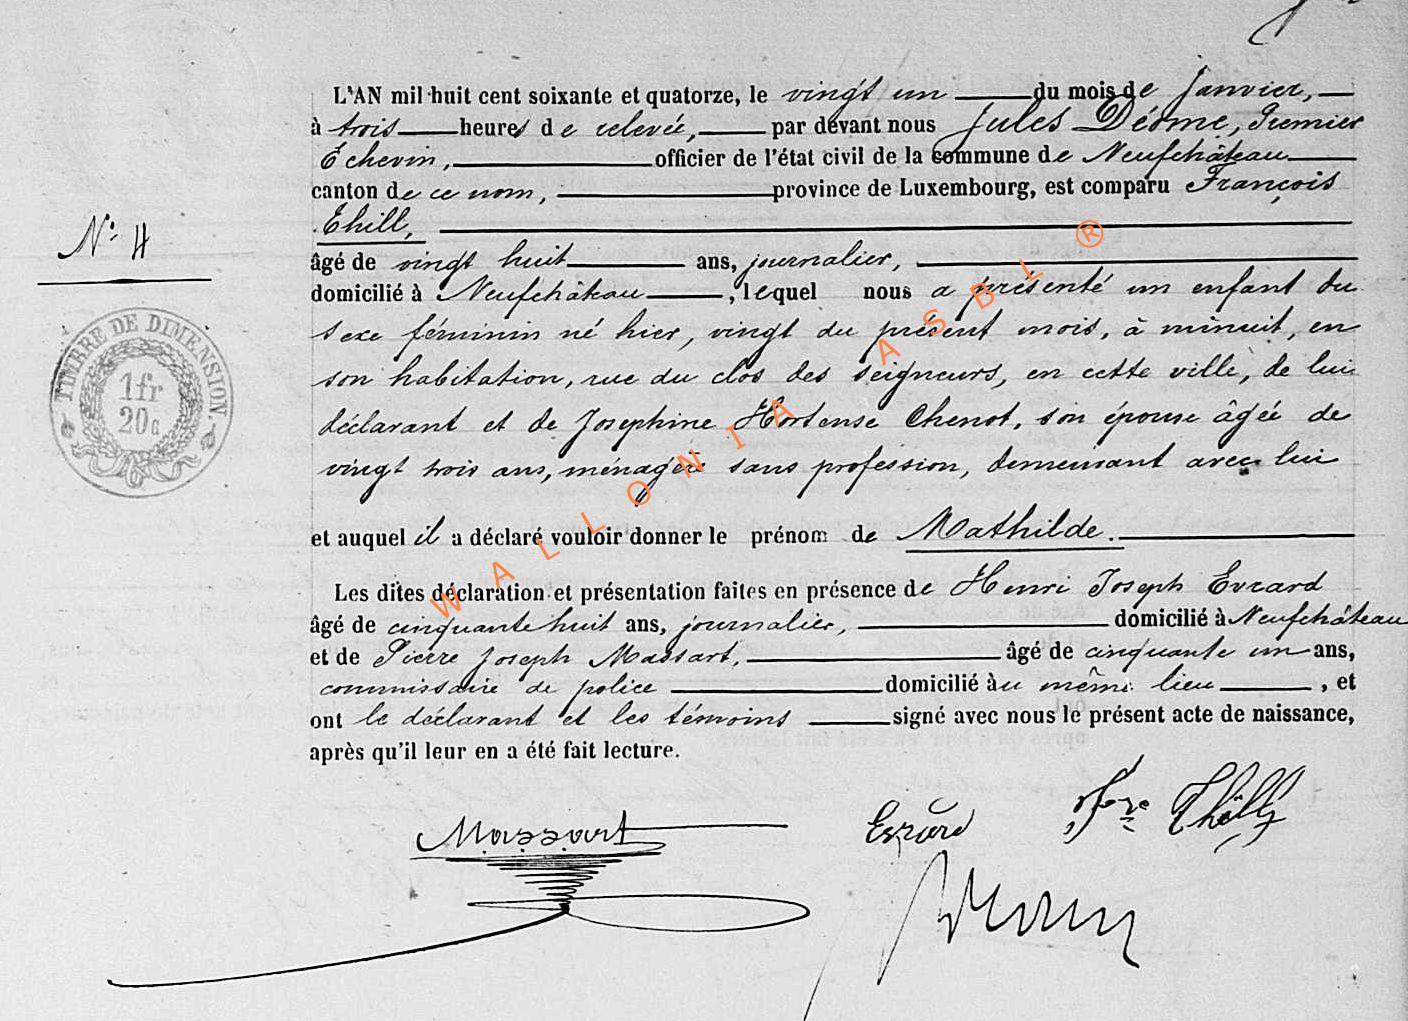 L'AN mil huit cent soixante et quatorze, le vingt un du mois de Janvier,
à trois heures de relevée, par devant nous Jules Déome, Premier
Echevin, officier de l'état civil de la commune de Neufchâteau
canton de ce nom, province de Luxembourg, est comparu François
Thill,
N° 4
âgé de vingt huit ans, journalier,
domicilié à Neufchâteau, lequel nous a présenté un enfant du
sexe féminin né hier, vingt du présent mois, à minuit, en
son habitation, rue du clos des seigneurs, en cette ville, de lui
TIMBRE DE DIMENSION
1 fr
20 c
déclarant et de Joséphine Hortense Chenot, son épouse âgée de
vingt trois ans, ménagère sans profession, demeurant avec lui
et auquel il a déclaré vouloir donner le prénom de Mathilde.
Les dites déclaration et présentation faites en présence de Henri Joseph Evrard
âgé de cinquante huit ans, journalier, domicilié à Neufchâteau
et de Pierre Joseph Massart, âgé de cinquante un ans,
commissaire de police domicilié au même lieu, et
ont le déclarant et les témoins signé avec nous le présent acte de naissance,
après qu'il leur en a été fait lecture.
Massart Evrard Thill
WALLONIA ASBL ®